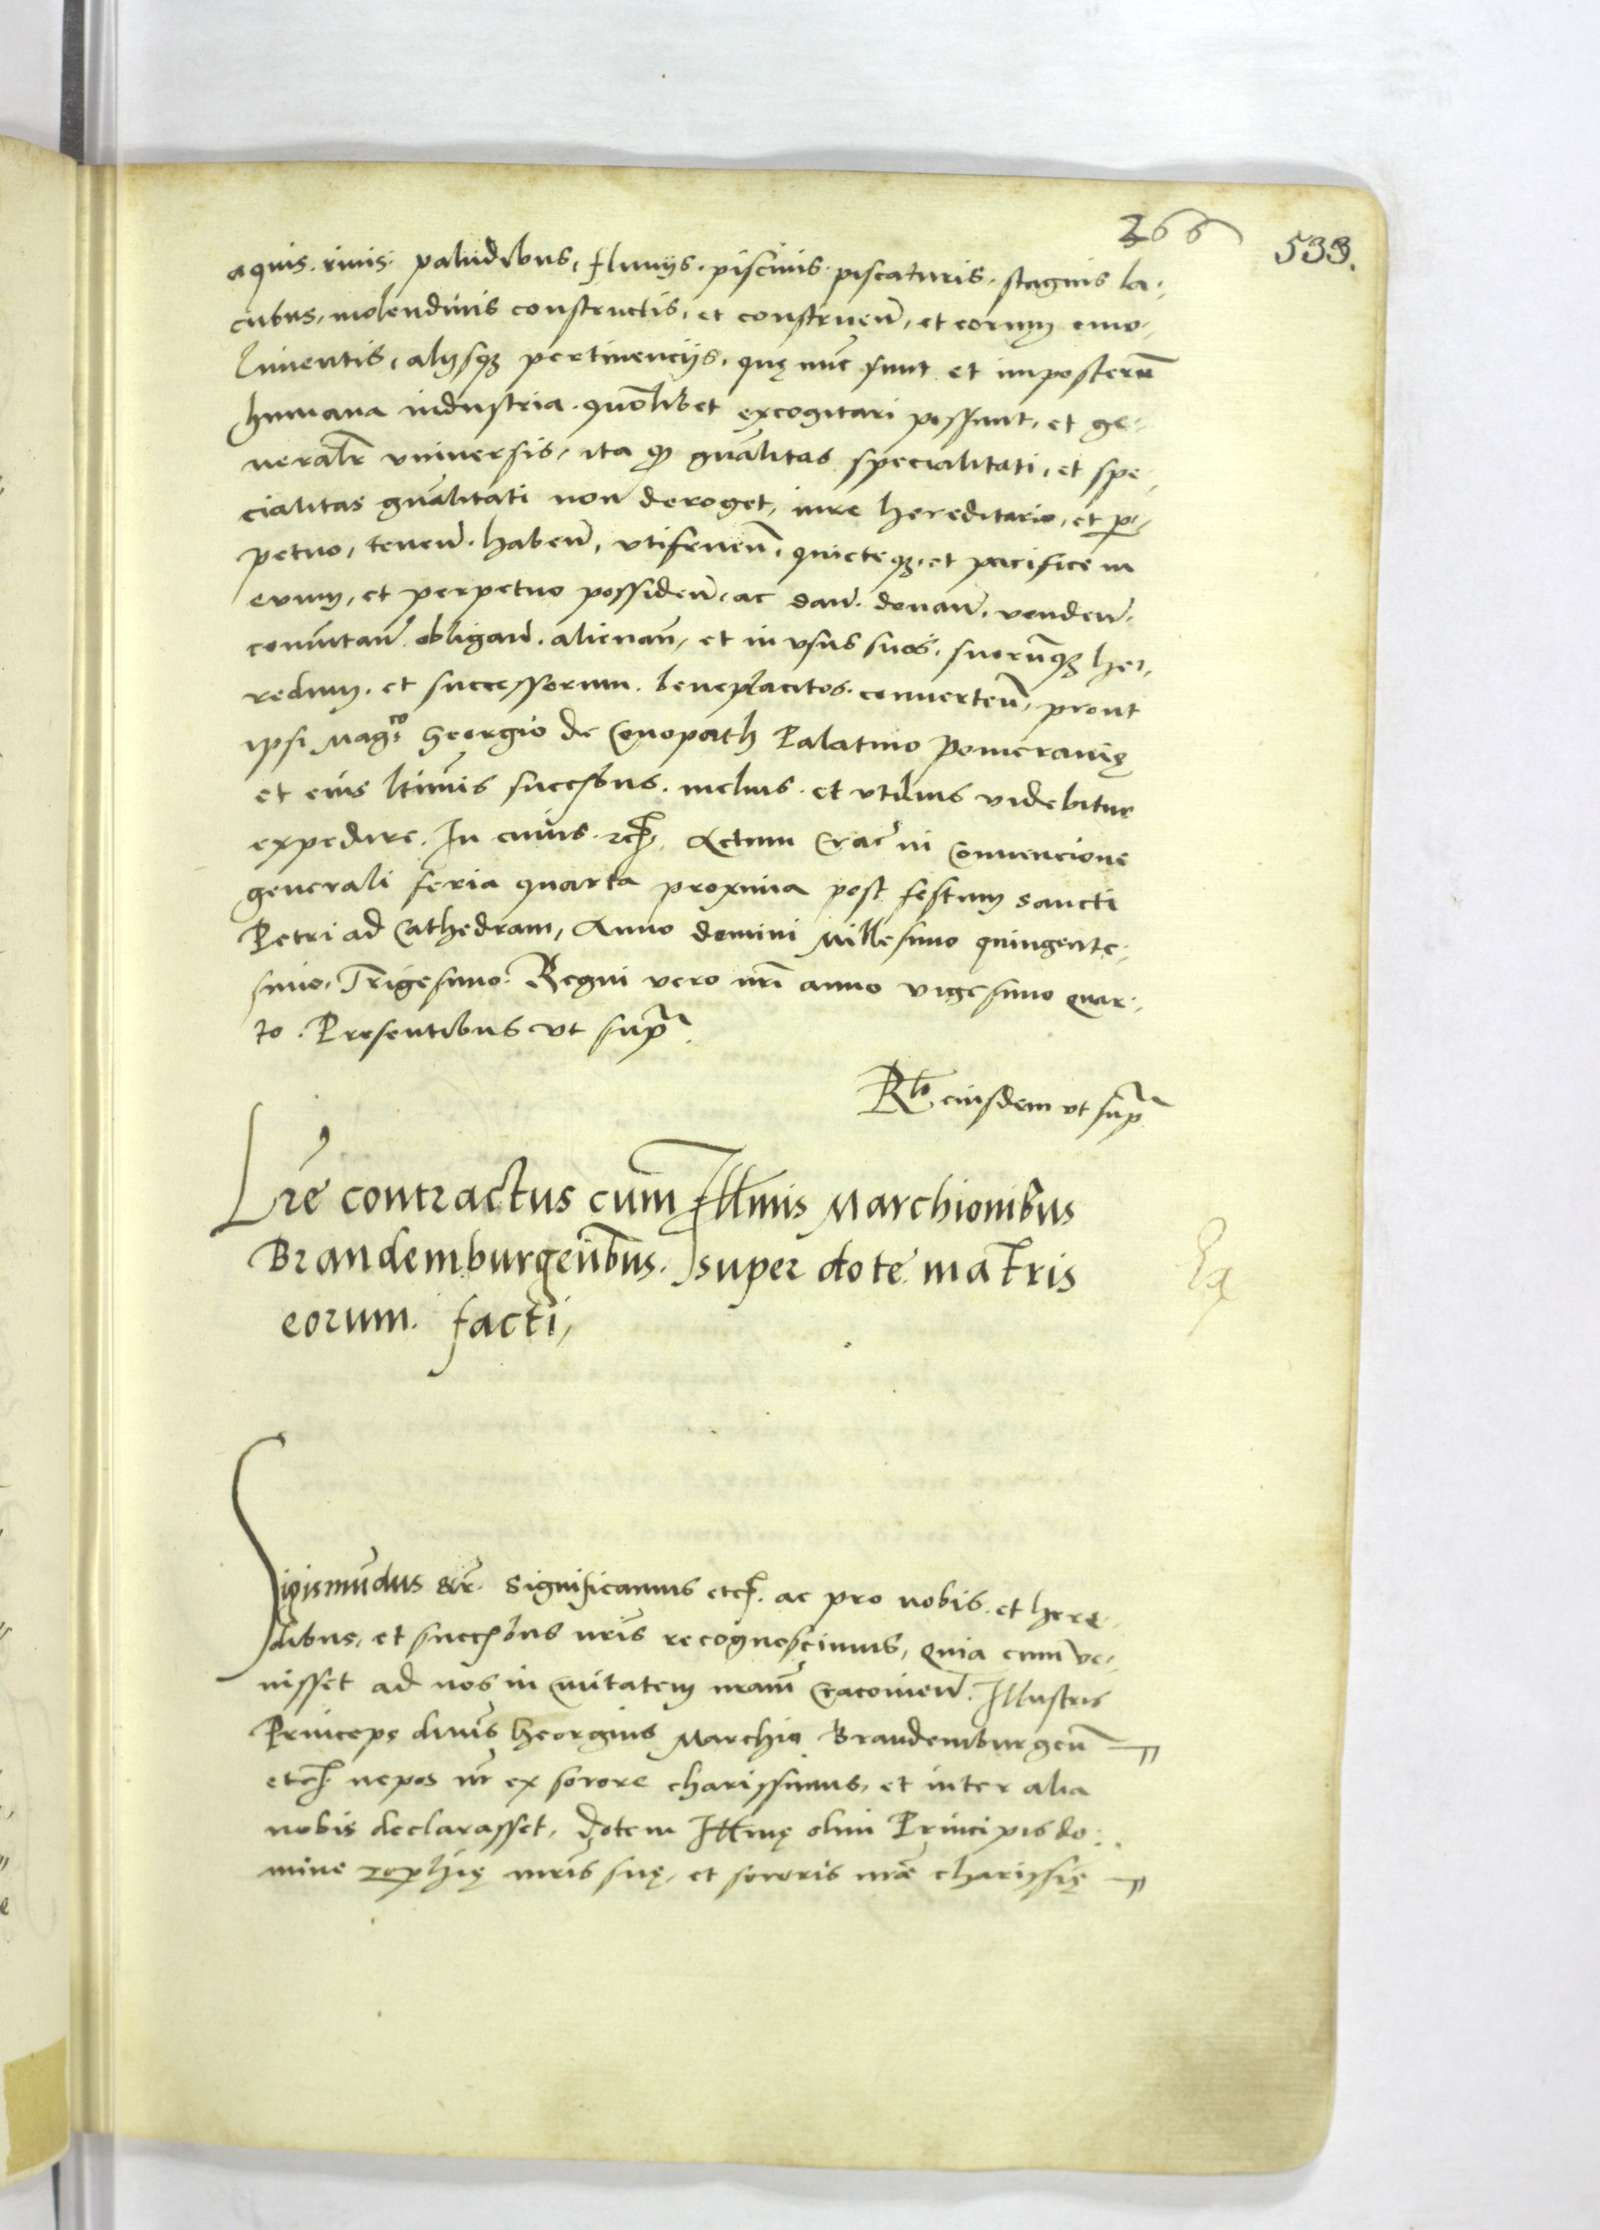 266
533.
aquis. riuis. paludibus, fluuijs. piscinis. piscaturis. stagnis la-
cubus, molendinis constructis, et construen̄, et eorum emo-
limentis, alijsq̨ pertinencijs, quę nūc sunt et imposterū
humana industria. quōlibet excogitari possunt, et ge-
neralr̄ vniuersis, ita q̨ gnālitas specialitati, et spe-
cialitas gnālitati non deroget, iure hereditario, et per-
petuo, tenen̄. haben̄, vtifruen̄, quieteq̨, et pacifice in
euum, et perpetuo possiden̄, ac dan̄. donan̄. venden̄.
comutan̄. obligan̄. alienan̄, et in vsus suos, suorūq̨ he-
redum. et successorum. beneplacitos. conuerten̄, prout
ipsi Mag^co Georgio de Conopath Palatino Pomeranię
et eius ltimis succsōribus. melius. et vtilius videbitur
expedire. In cuius. rei etc̄. Actum Crac̄ in Conuencione
generali feria quarta proxima post festum sancti
Petri ad Cathedram, Anno domini Millesimo quingente-
simo, Trigesimo. Regni vero nrī anno vigesimo quar-
to. Presentibus vt sup^a.
R^lo eiusdem vt sup^a
Lrē contractus cum Illmis Marchionibus
Brandemburgeñbus. super dote matris
eorum. facti,
Sigismūdus etc̄. Significamus etc̄. ac pro nobis. et here-
dibus, et succsōribus nrīs recognoscimus, Quia cum ve-
nisset ad nos in Ciuitatem nram̄ Cracouien̄. Illustris
Princeps dn̄us Georgius Marchio Brandemburgen̄
etc̄. nepos nr̄ ex sorore charissimus, et inter alia
nobis declarasset, dotem Illmę olim Principis do-
mine Zophię mrīs suę, et sororis nrāe charissię